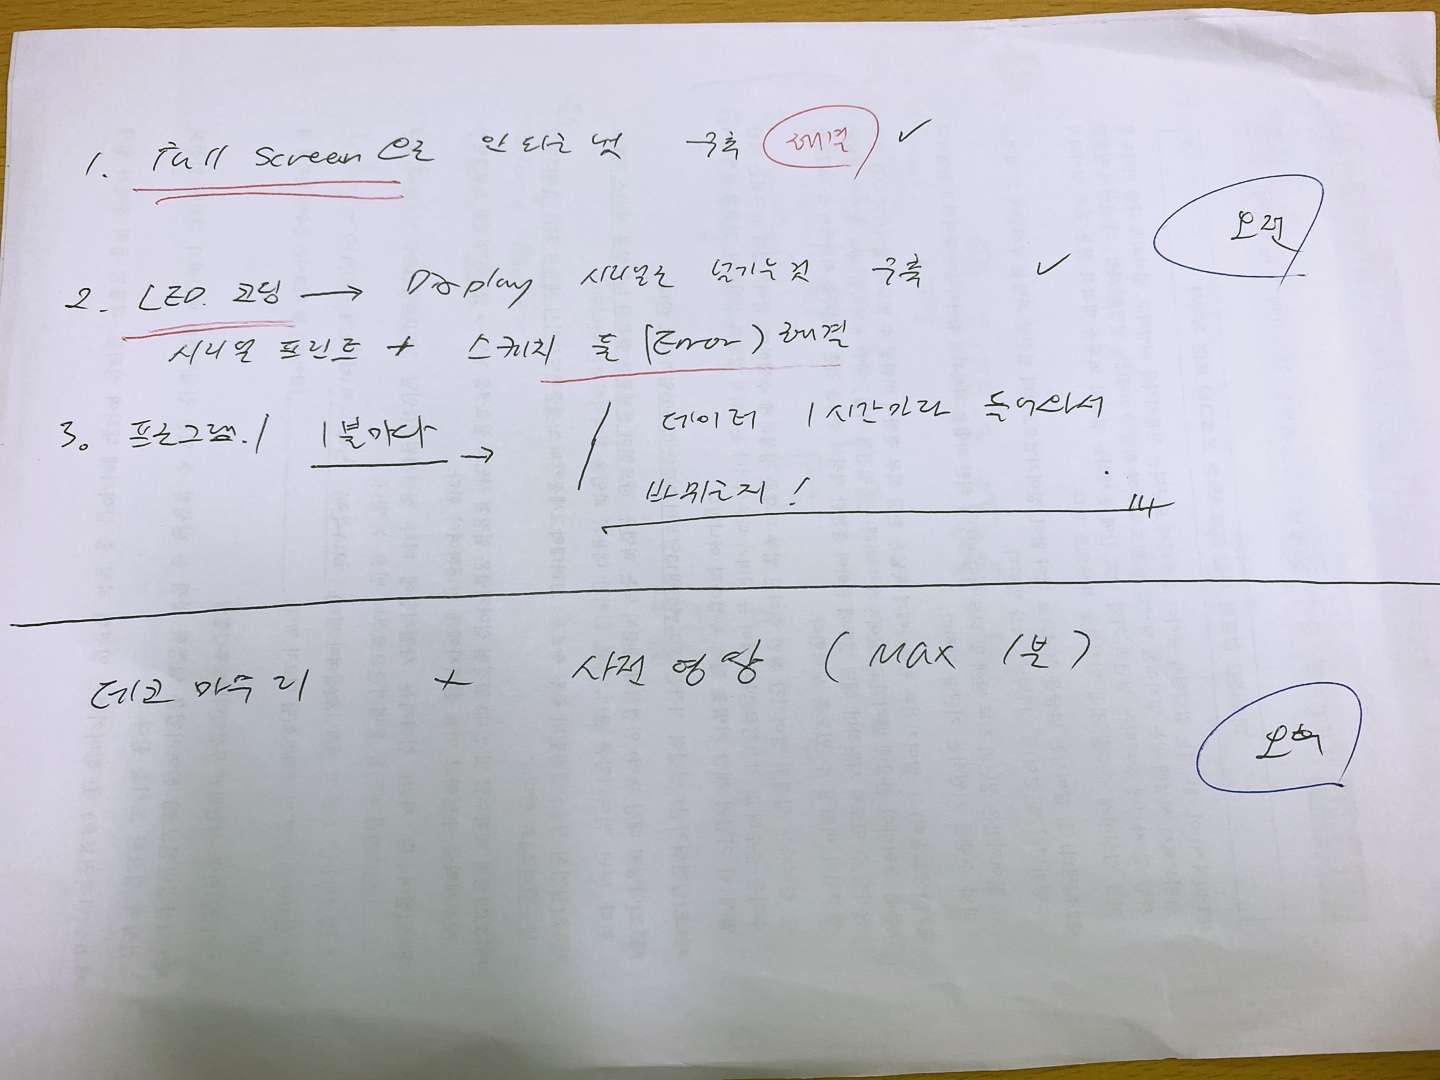 1. Full Screen으로 안 되는 것 구축 해결 ✓
오전
2. LED 코딩 → Display 시리얼로 넘기는 것 구축 ✓
시리얼 프린트 + 스케치 툴 (Error) 해결
3. 프로그램./ 1분마다 → / 데이터 1시간마다 들어와서
바뀌는지!
데코 마무리 + 사전 영상 (Max 1분)
오후